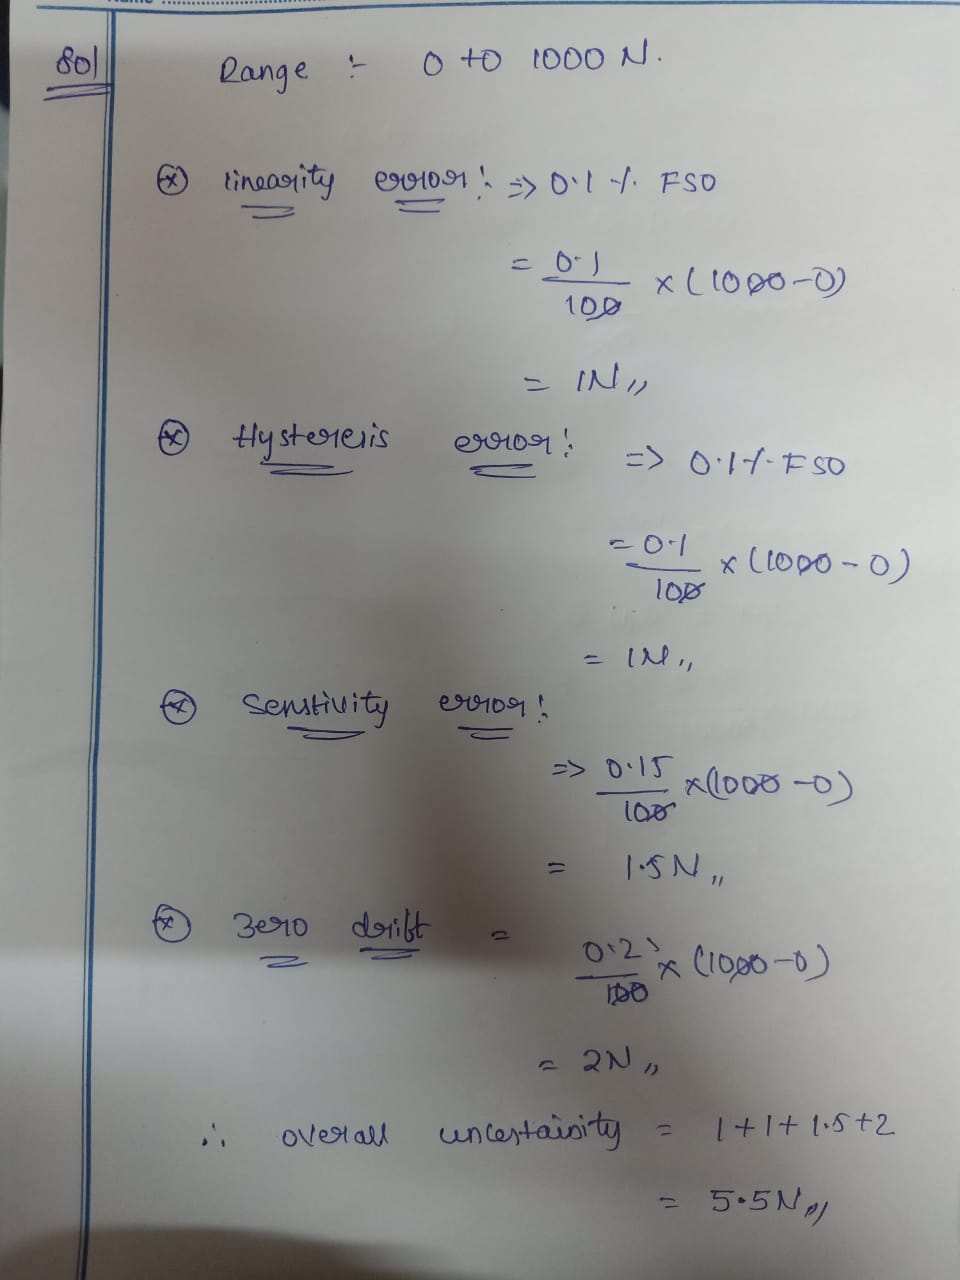 80)
Range :- 0 to 1000 N.
linearity error : => 0.1 % FSO
= 0.1/100 × (1000-0)
= 1N,,
Hysteresis error : => 0.1% FSO
= 0.1/100 × (1000-0)
= 1N,,
Senstivity error :
=> 0.15/100 ×(1000-0)
= 1.5N,,
Zero drift = 0.2/100 × (1000-0)
= 2N,,
∴ overall uncertainity = 1+1+1.5+2
= 5.5N,,